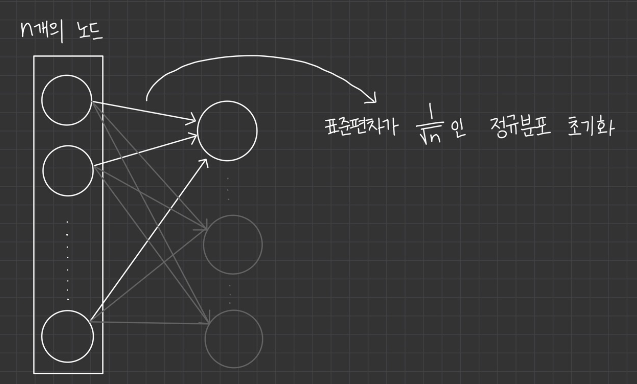 n개의 노드
표준편차가 1/√n 인 정규분포 초기화